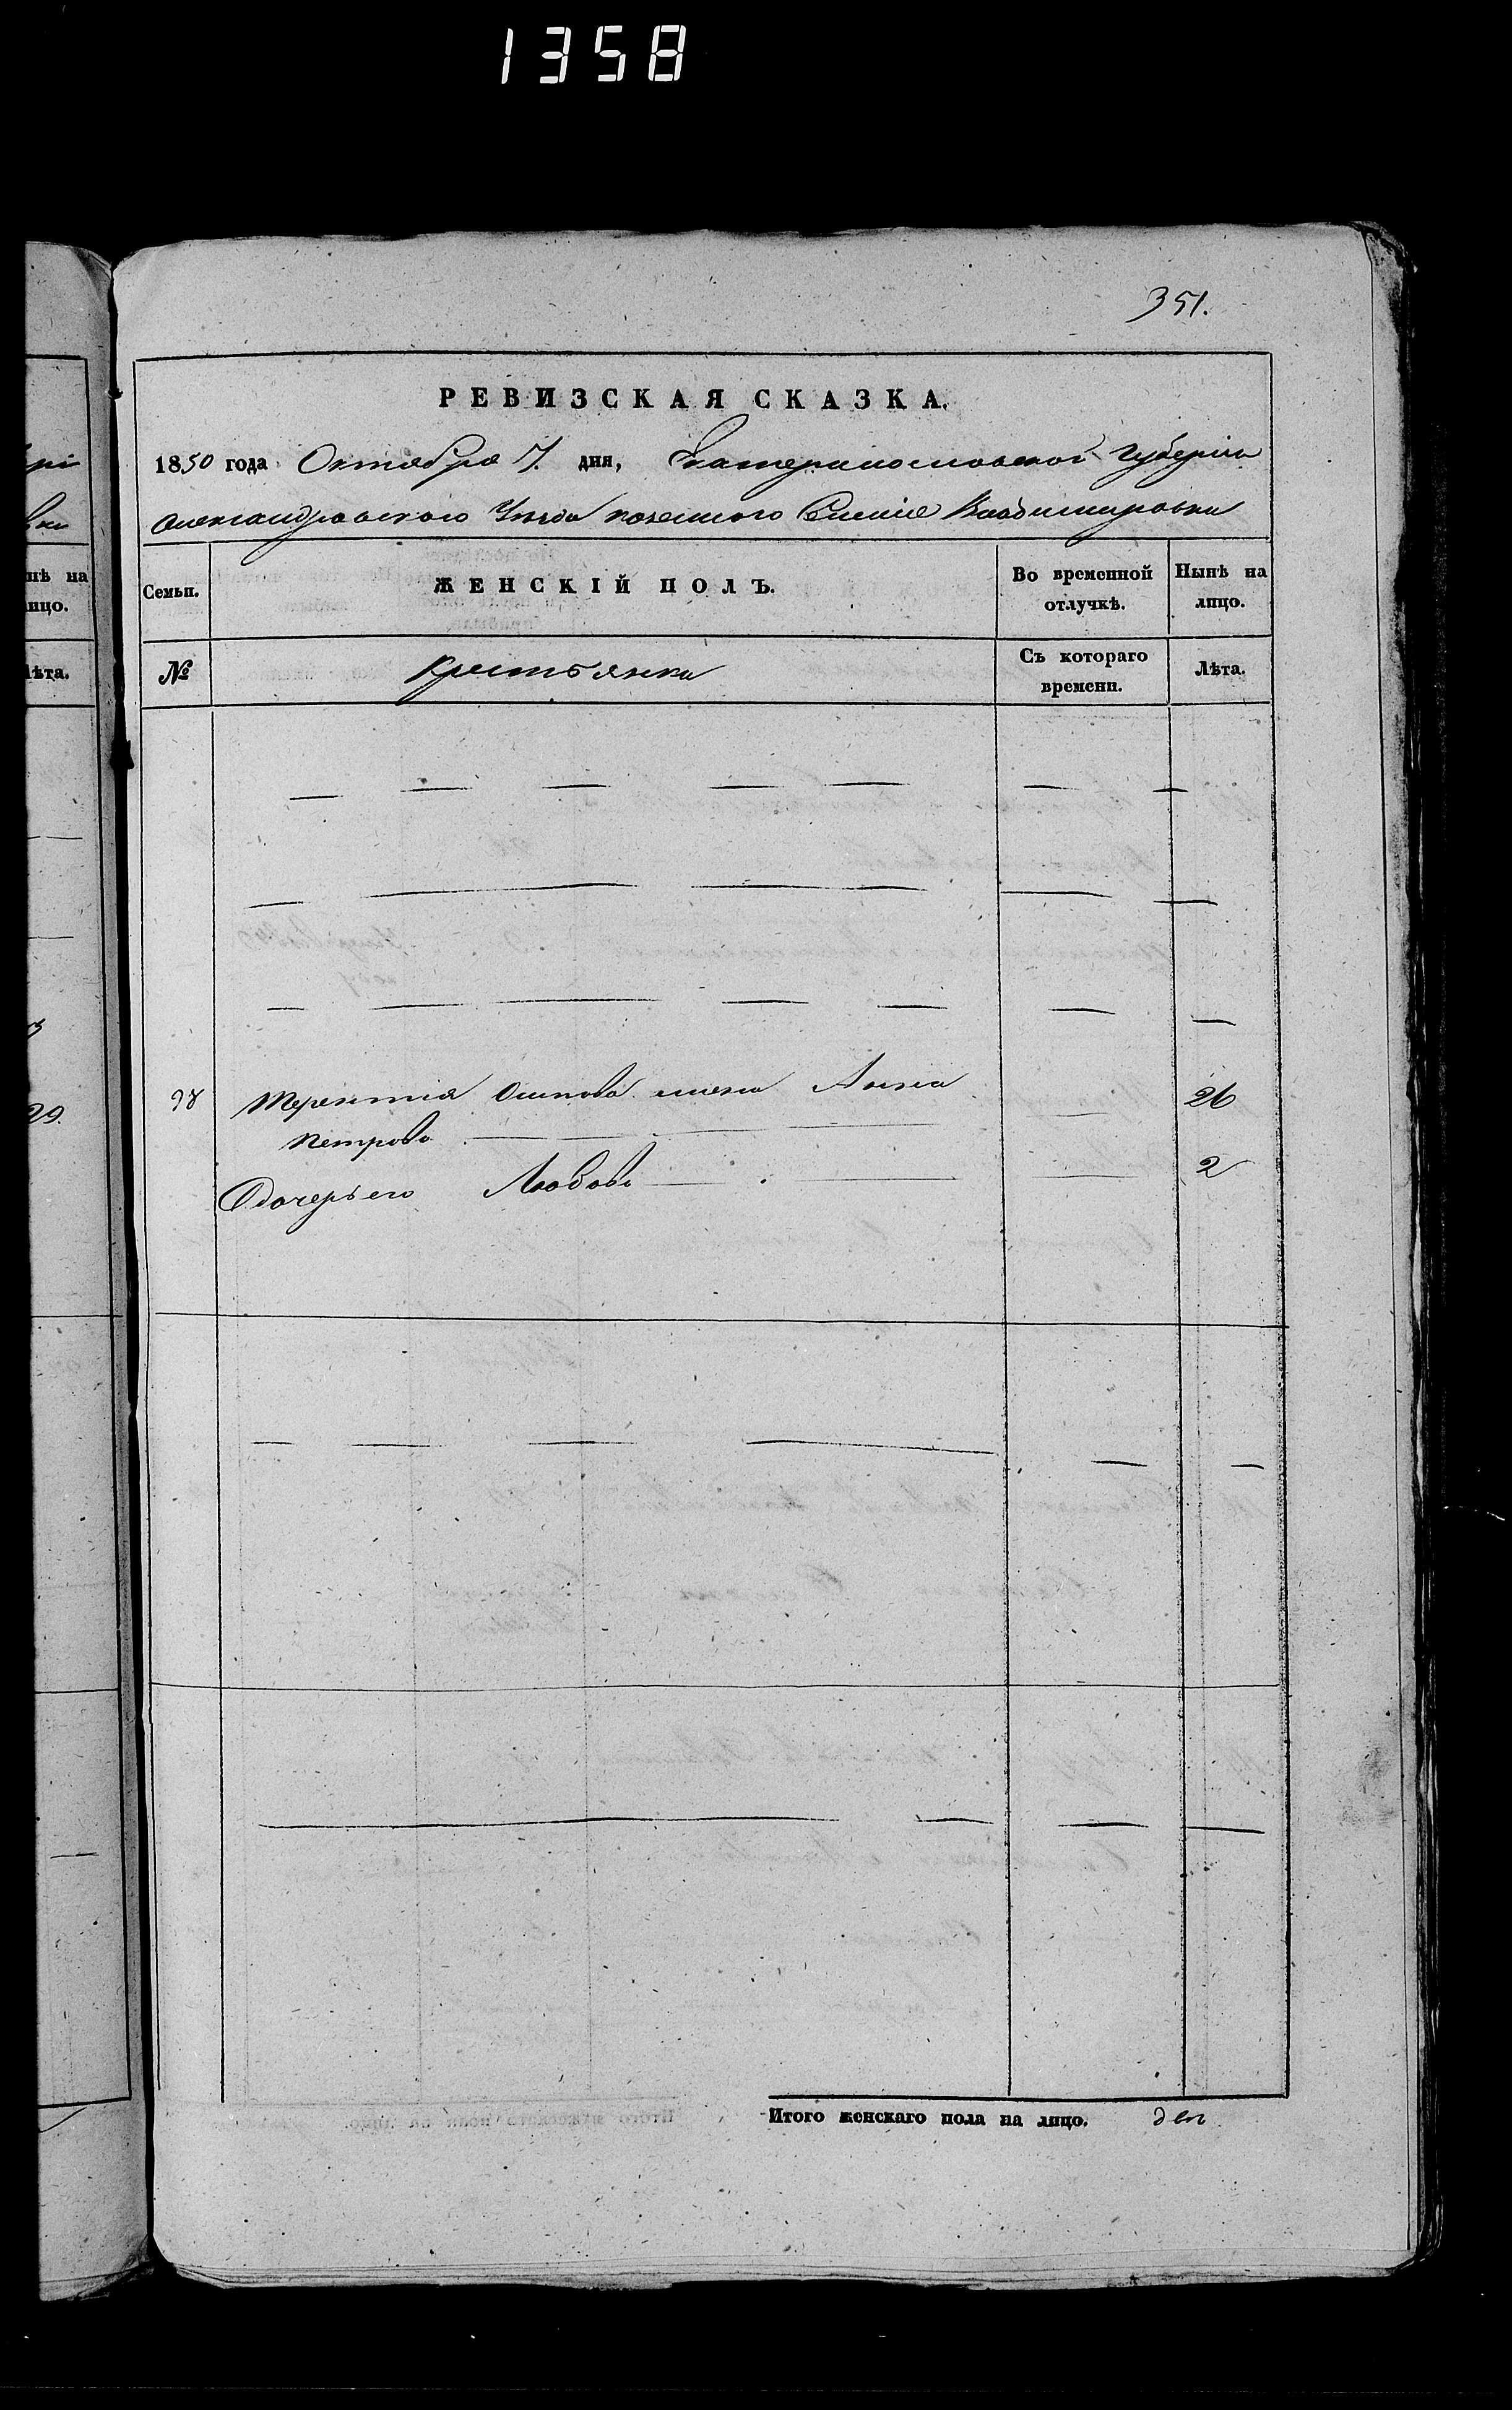 1358
351.
РЕВИЗСКАЯ СКАЗКА.
1850 года Октября 7. дня, Екатеринославской Губерніи
Александровского Уезда казенного Селенія Владимировки
Семьи. ЖЕНСКІЙ ПОЛЪ. Во временной отлучкѣ. Нынѣ на лицо.
№ крестьянки Съ котораго времени. Лѣта.
98 Терентія Осипова жена Анна 26
Петрова
Дочерь его Любовь 2
Итого женскаго пола на лицо. две
нѣ на
ицо.
Лѣта.
29.